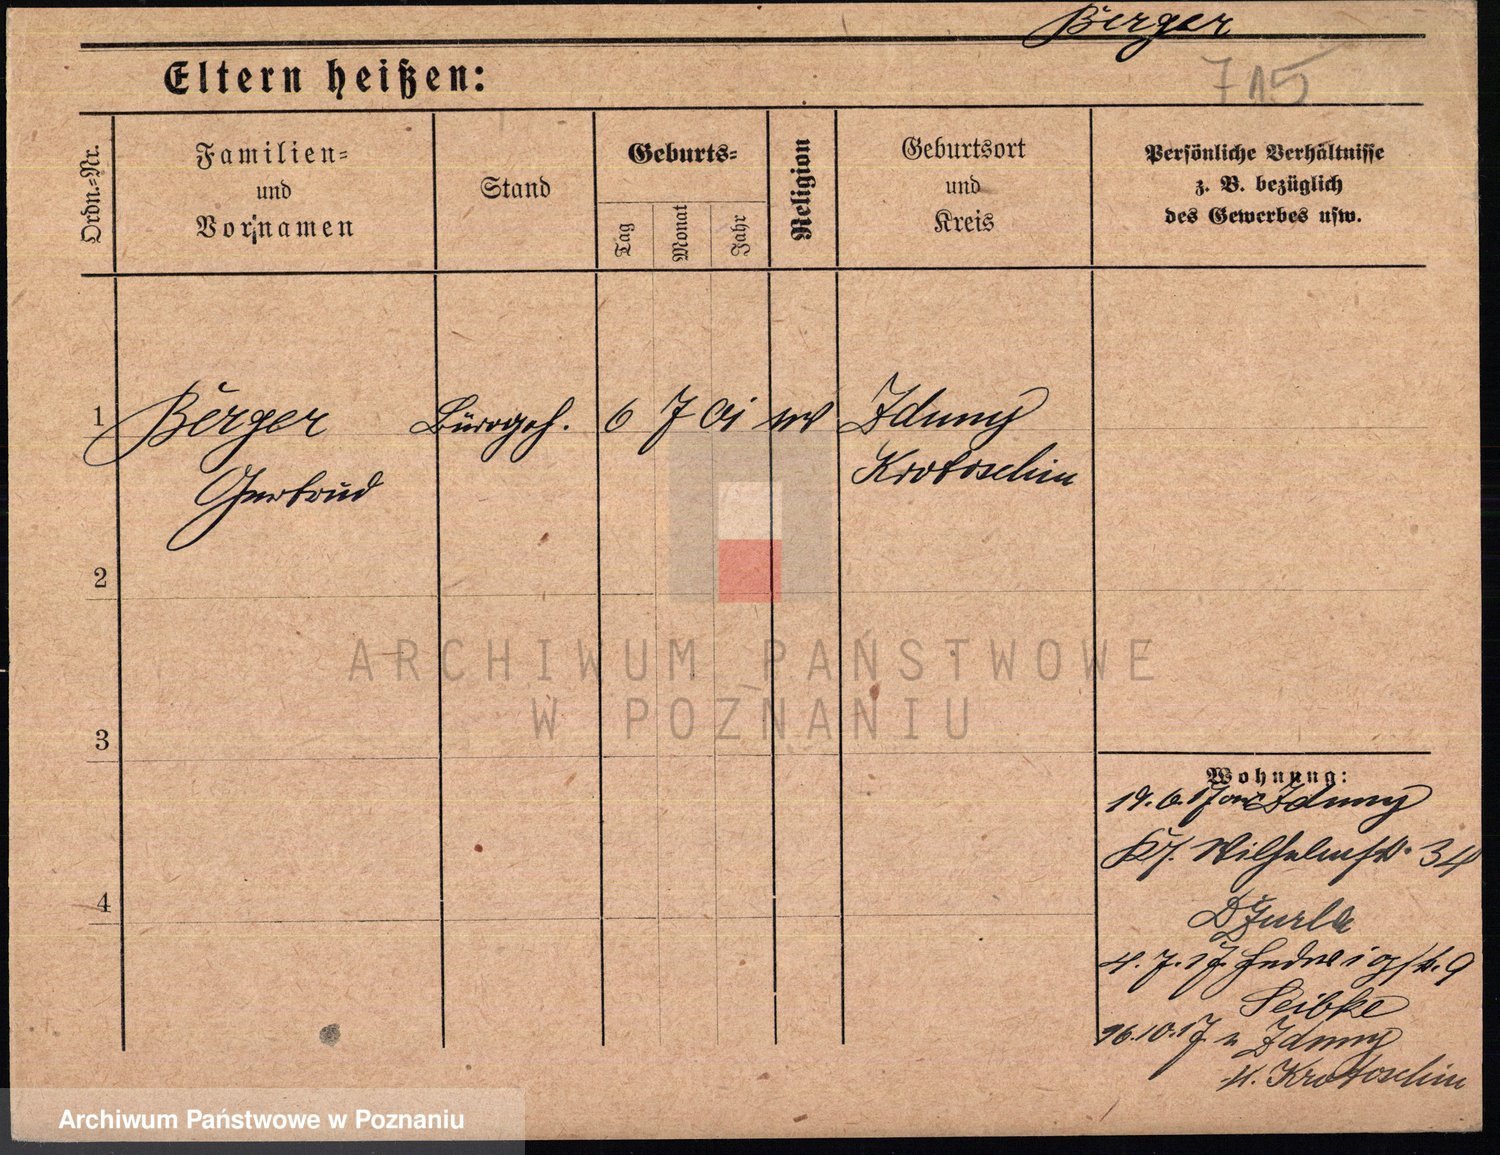 Berger
Eltern heißen:
715
Ordn.=Nr.
Familien=
und
Vornamen
Stand
Geburts=
Tag
Monat
Jahr
Religion
Geburtsort
und
Kreis
Persönliche Verhältnisse
z. B. bezüglich
des Gewerbes usw.
1
Berger
Gertrud
Bürogeh.
6 7 01
Zduny
Krotoschin
2
3
4
Wohnung:
19.6.17 Zduny
Wilhelmstr. 34
4.7.17 Hedwigstr. 9
Seibke
16.10.17 n Zduny
K. Krotoschin
ARCHIWUM PAŃSTWOWE
W POZNANIU
Archiwum Państwowe w Poznaniu